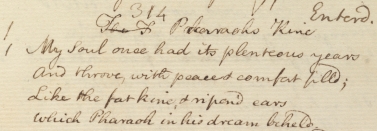 314 Enterd.
The F Pharaohs Kine
My Soul once had its plenteous years
And throve, with peace & comfort filld;
Like the fat kine, & ripend ears
Which Pharaoh in his dream beheld.